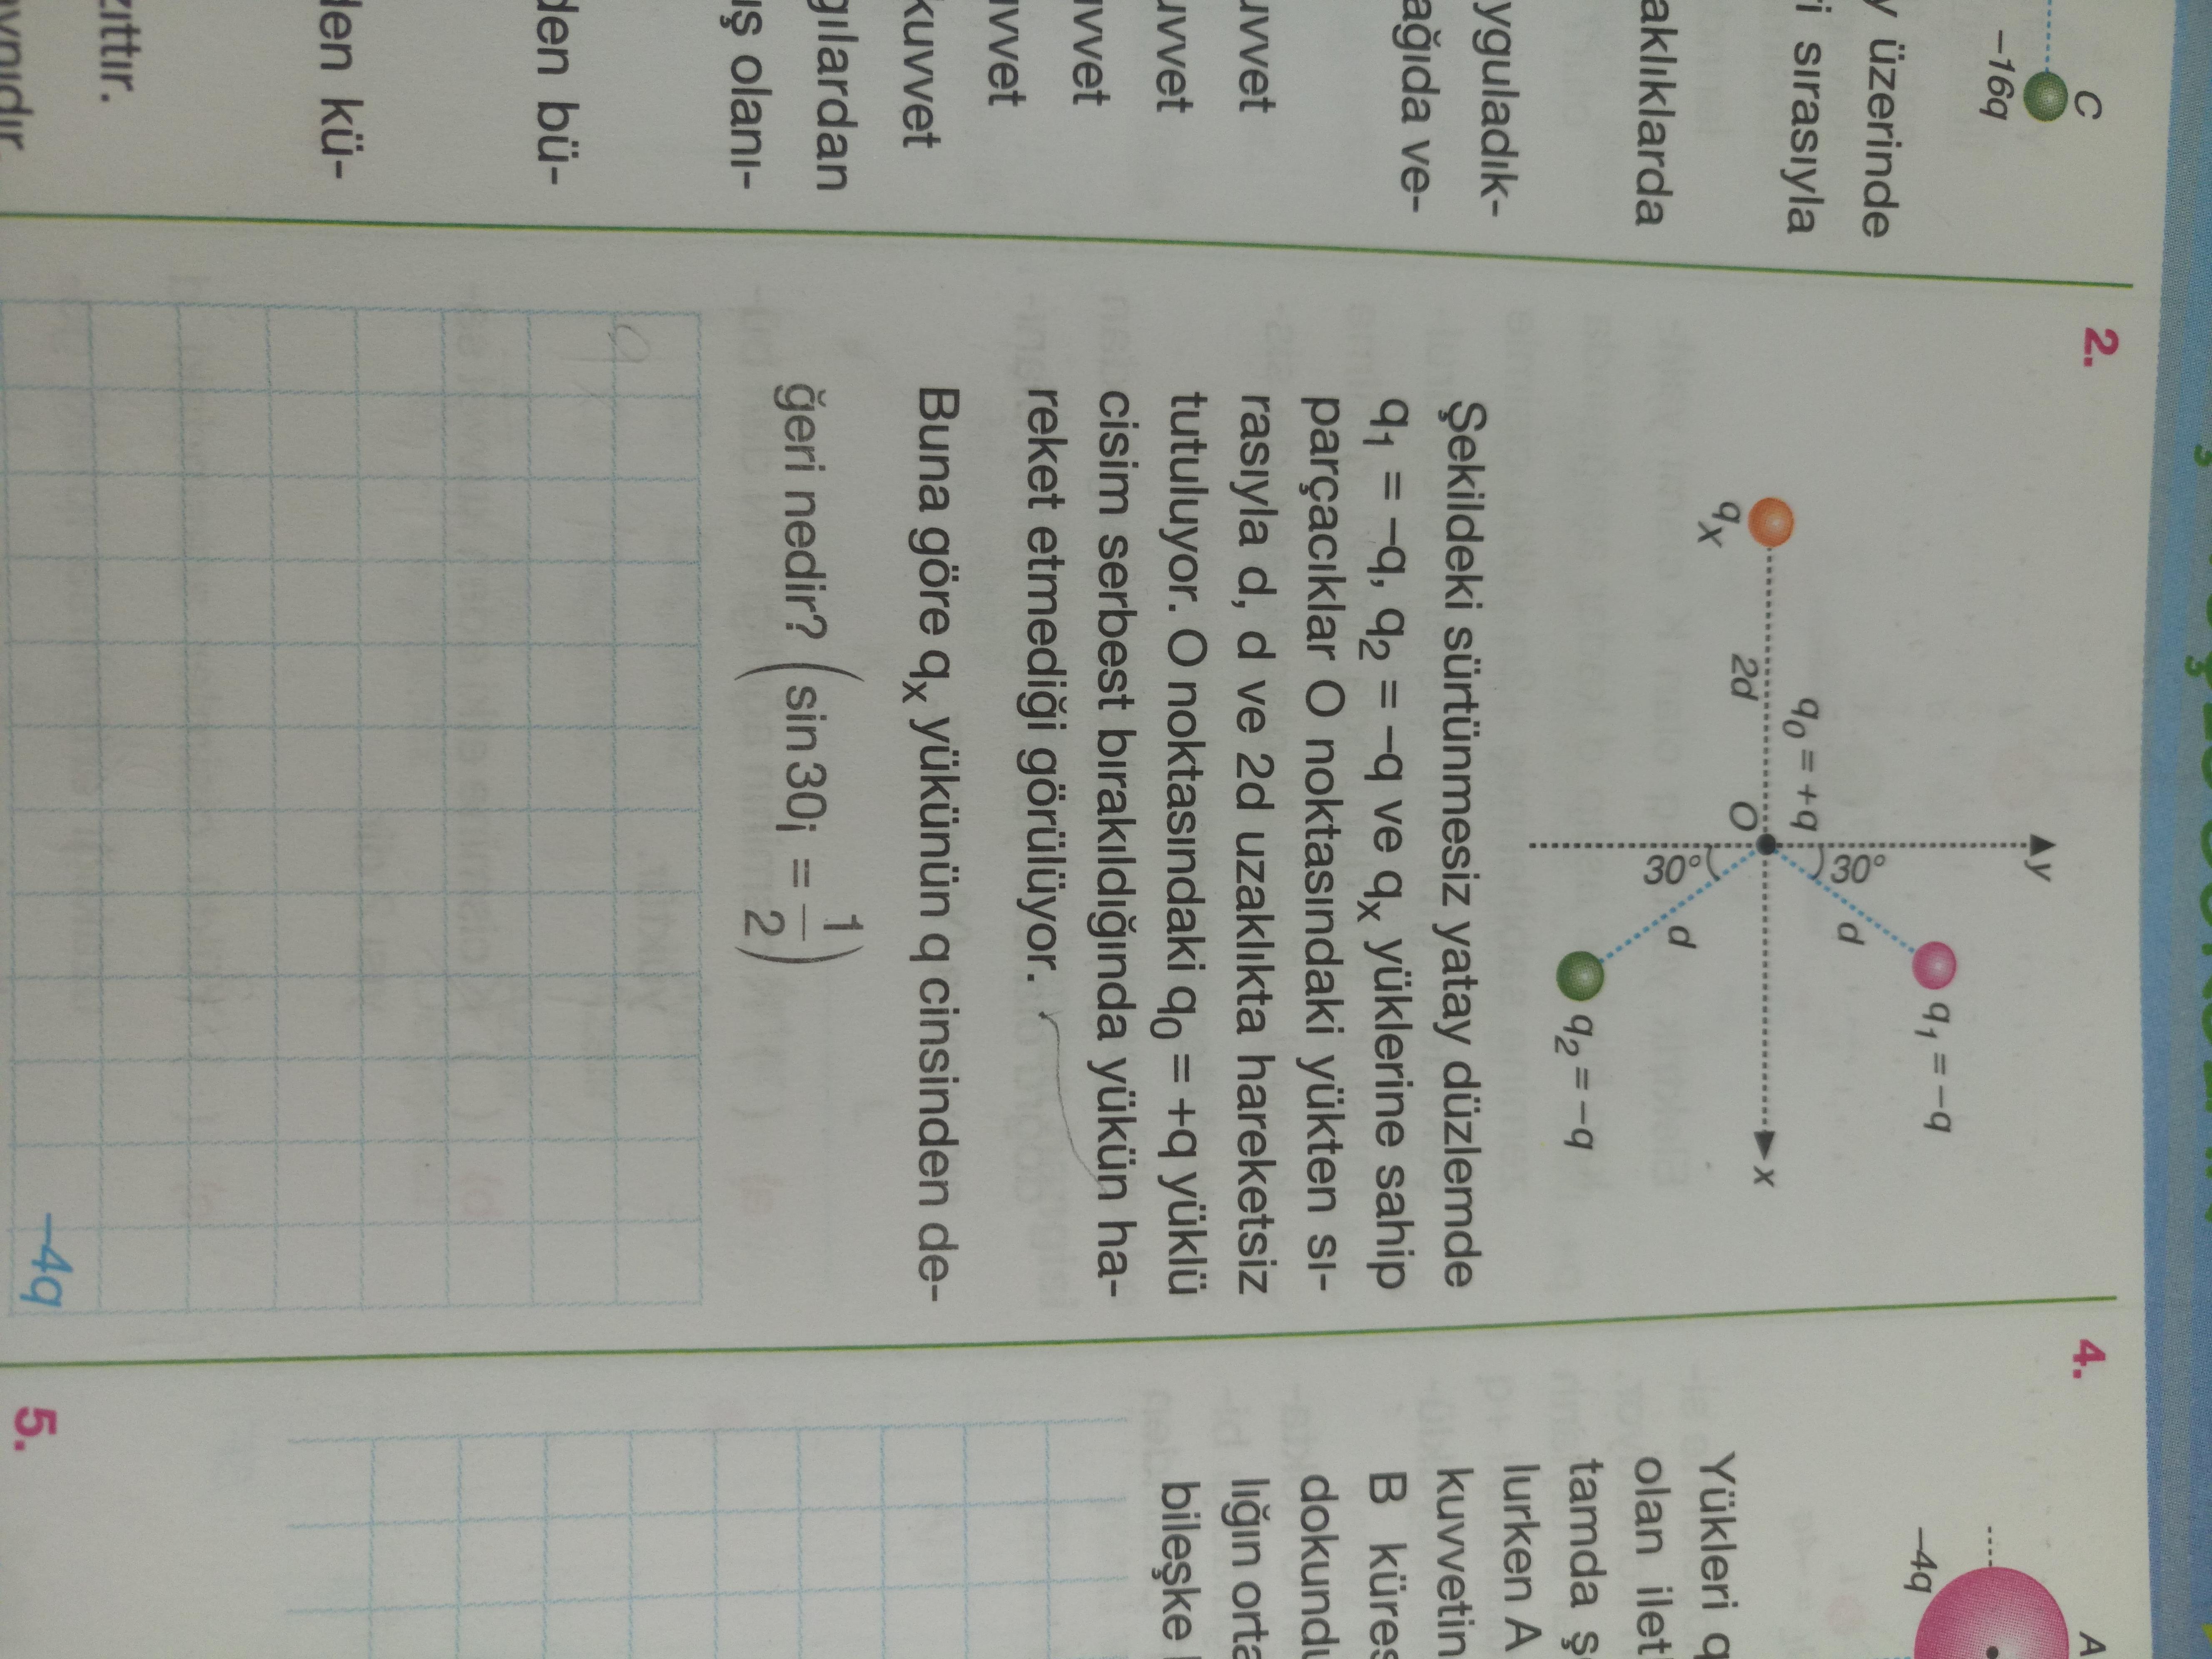 C
−16q
y üzerinde
i sırasıyla
aklıklarda
yguladık-
ağıda ve-
uvvet
uvvet
uvvet
uvvet
kuvvet
gılardan
ış olanı-
den bü-
den kü-
zıttır.
aynıdır.
2.
y
30°
d
q₁ = −q
q₀ = +q
2d
O
x
qₓ
30°
d
q₂ = −q
Şekildeki sürtünmesiz yatay düzlemde
q₁ = −q, q₂ = −q ve qₓ yüklerine sahip
parçacıklar O noktasındaki yükten sı-
rasıyla d, d ve 2d uzaklıkta hareketsiz
tutuluyor. O noktasındaki q₀ = +q yüklü
cisim serbest bırakıldığında yükün ha-
reket etmediği görülüyor.
Buna göre qₓ yükünün q cinsinden de-
ğeri nedir? (sin30¡ = 1/2)
−4q
4.
A
−4q
Yükleri q
olan ilet
tamda ş
lurken A
kuvvetin
B küres
dokundu
lığın orta
bileşke
5.